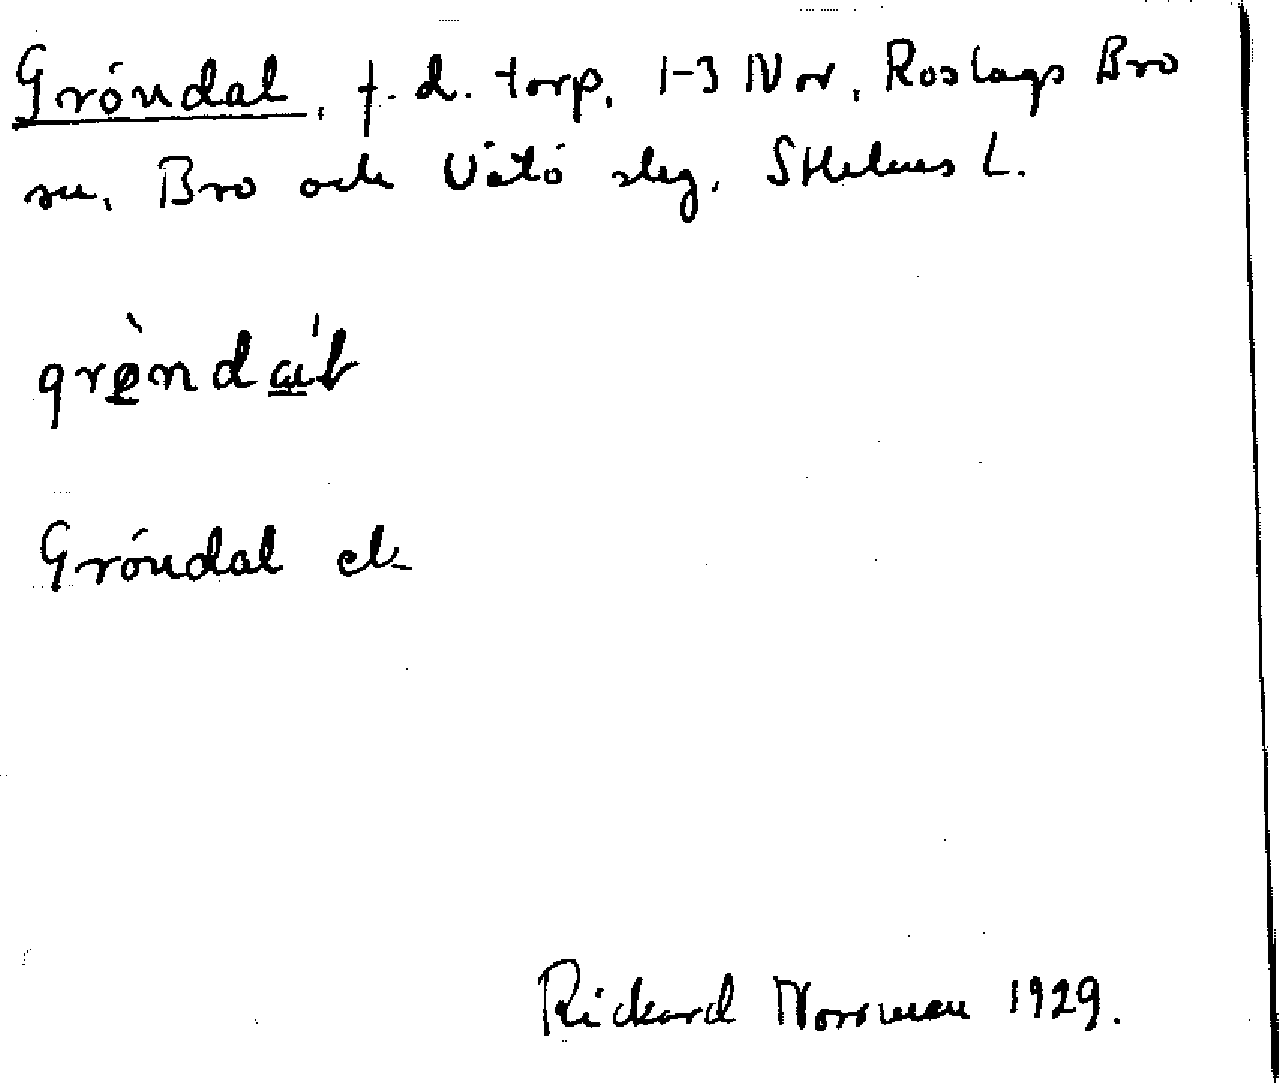 Gröndal, f. d. torp, 1-3 Nor, Roslags Bro
sn, Bro och Vätö slg, Sthlms L.
grèndal
Gröndal ek
Rickard Norrman 1929.